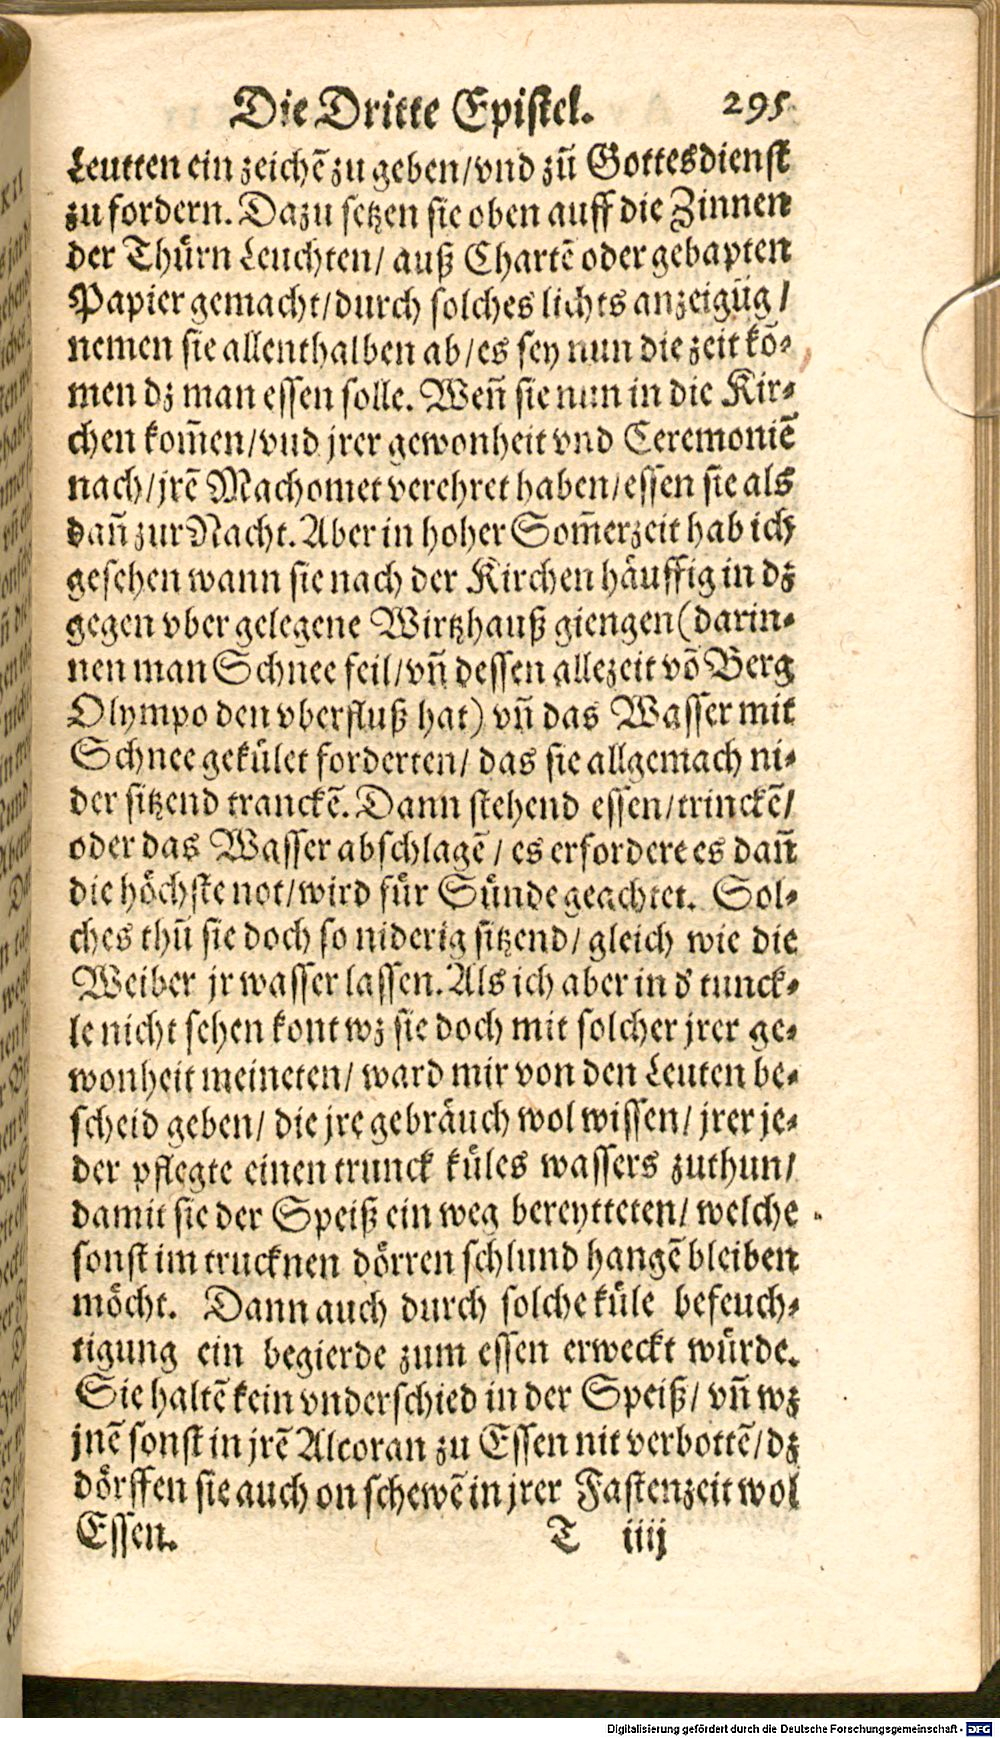 Die Dritte Epistel. 295
Leutten ein zeichẽ zu geben/vnd zũ Gottesdienst
zu fordern. Dazu setzen sie oben auff die Zinnen
der Thürn Leuchten/ auß Chartẽ oder gebapten
Papier gemacht/durch solches lichts anzeigũg/
nemen sie allenthalben ab/es sey nun die zeit kõ-
men dz man essen solle. Weñ sie nun in die Kir-
chen kom̃en/vnd jrer gewonheit vnd Ceremoniẽ
nach/jrẽ Machomet verehret haben/essen sie als
dañ zur Nacht. Aber in hoher Som̃erzeit hab ich
gesehen wann sie nach der Kirchen häuffig in dz
gegen vber gelegene Wirtzhauß giengen(darin-
nen man Schnee feil/vñ dessen allezeit võ Berg
Olympo den vberfluß hat) vñ das Wasser mit
Schnee gekület forderten/ das sie allgemach ni-
der sitzend tranckẽ. Dann stehend essen/trinckẽ/
oder das Wasser abschlagẽ/ es erfordere es dañ
die höchste not/wird für Sünde geachtet. Sol-
ches thũ sie doch so niderig sitzend/ gleich wie die
Weiber jr wasser lassen. Als ich aber in d' tunck-
le nicht sehen kont wz sie doch mit solcher jrer ge-
wonheit meineten/ ward mir von den Leuten be-
scheid geben/ die jre gebräuch wol wissen/ jrer je-
der pflegte einen trunck küles wassers zuthun/
damit sie der Speiß ein weg bereytteten/ welche
sonst im trucknen dörren schlund hangẽ bleiben
möcht. Dann auch durch solche küle befeuch-
tigung ein begierde zum essen erweckt würde.
Sie haltẽ kein vnderschied in der Speiß/ vñ wz
jnẽ sonst in jrẽ Alcoran zu Essen nit verbottẽ/dz
dörffen sie auch on schewẽ in jrer Fastenzeit wol
Essen. T iiij
Digitalisierung gefördert durch die Deutsche Forschungsgemeinschaft - DFG